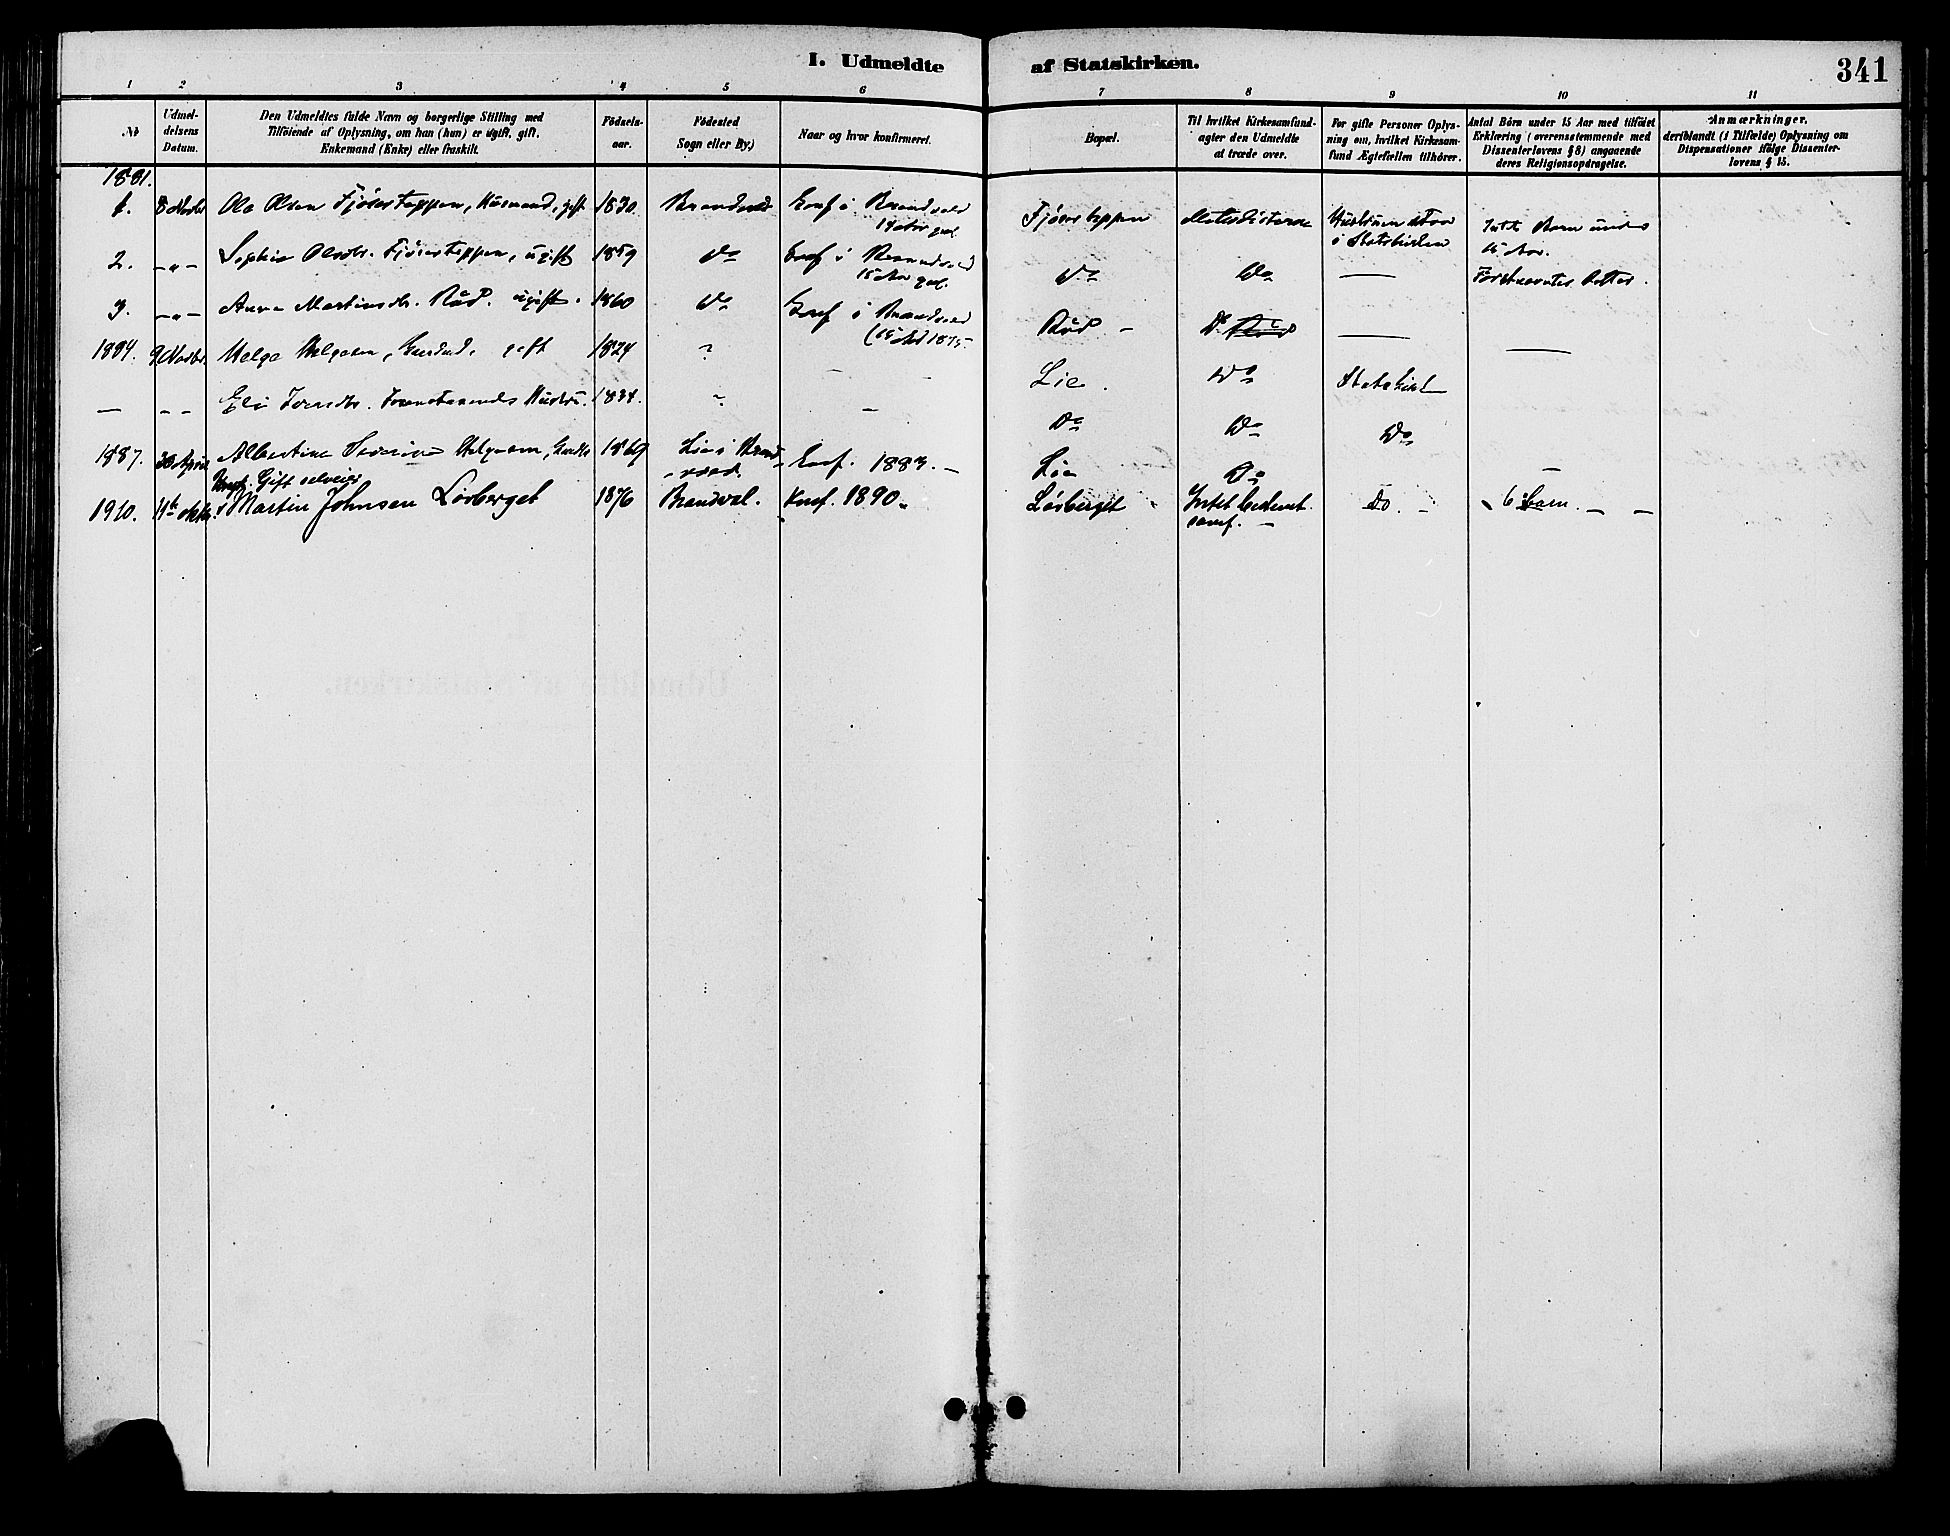 I. Udmeldte af Statskirken.
341
1 2 3 4 5 6 7 8 9 10 11
No
Udmel-
delsens
Datum.
Den Udmeldtes fulde Navn og borgerlige Stilling med
Tilföiende af Oplysning, om han (hun) er ugift, gift,
Enkemand (Enke) eller fraskilt.
Födsels-
aar.
Födested
Sogn eller By.)
Naar og hvor konfirmeret.
Bopæl.
Til hvilket Kirkesamfund
agter den Udmeldte
at træde over.
For gifte Personer Oplys-
ning om, hvilket Kirkesam-
fund Ægtefællen tilhörer.
Antal Börn under 15 Aar med tilföiet
Erklæring (overensstemmende med
Dissenterlovens § 8) angaaende
deres Religionsopdragelse.
Anmærkninger,
deriblandt (i Tilfælde) Oplysning om
Dispensationer ifölge Dissenter-
lovens § 15.
1881.
1. 8 Novbr Ola Olsen Fjöserteppen, Husmand, gift 1830. Brandvold Conf i Brandvold
19 Aar gml.
Fjöserteppen Metodisterne Hustruen staar
i Statskirken
Intet Barn under
15 Aar.
2. -"- Sophie Olsdtr. Fjöserteppen, ugift 1859 Do Conf i Brandvold
15 Aar gml.
Do Do — Förstnævntes Datter.
3. -"- Anne Martinsdtr. Rud. ugift. 1860 Do Conf i Brandvold
(15 1875-
Rud - Do Rud —
1884. 9 Novbr. Helge Helgesen, gift 1824 " -
Lie. Do Statskirk —
— - - Eli Hustru. 1834. " —
Do Do Do
1887. 30 April Albertine Severine Helgesen, 1869 Lie i Brand-
vold. Conf. 1883. —
Lie Do —
Gift selveier
1910. 11te oktbr. Martin Johnsen Lövberget 1876 Brandval. Konf. 1890.
Lövberget Intet bestemt
samf. —
Do. - 6 Barn. — —